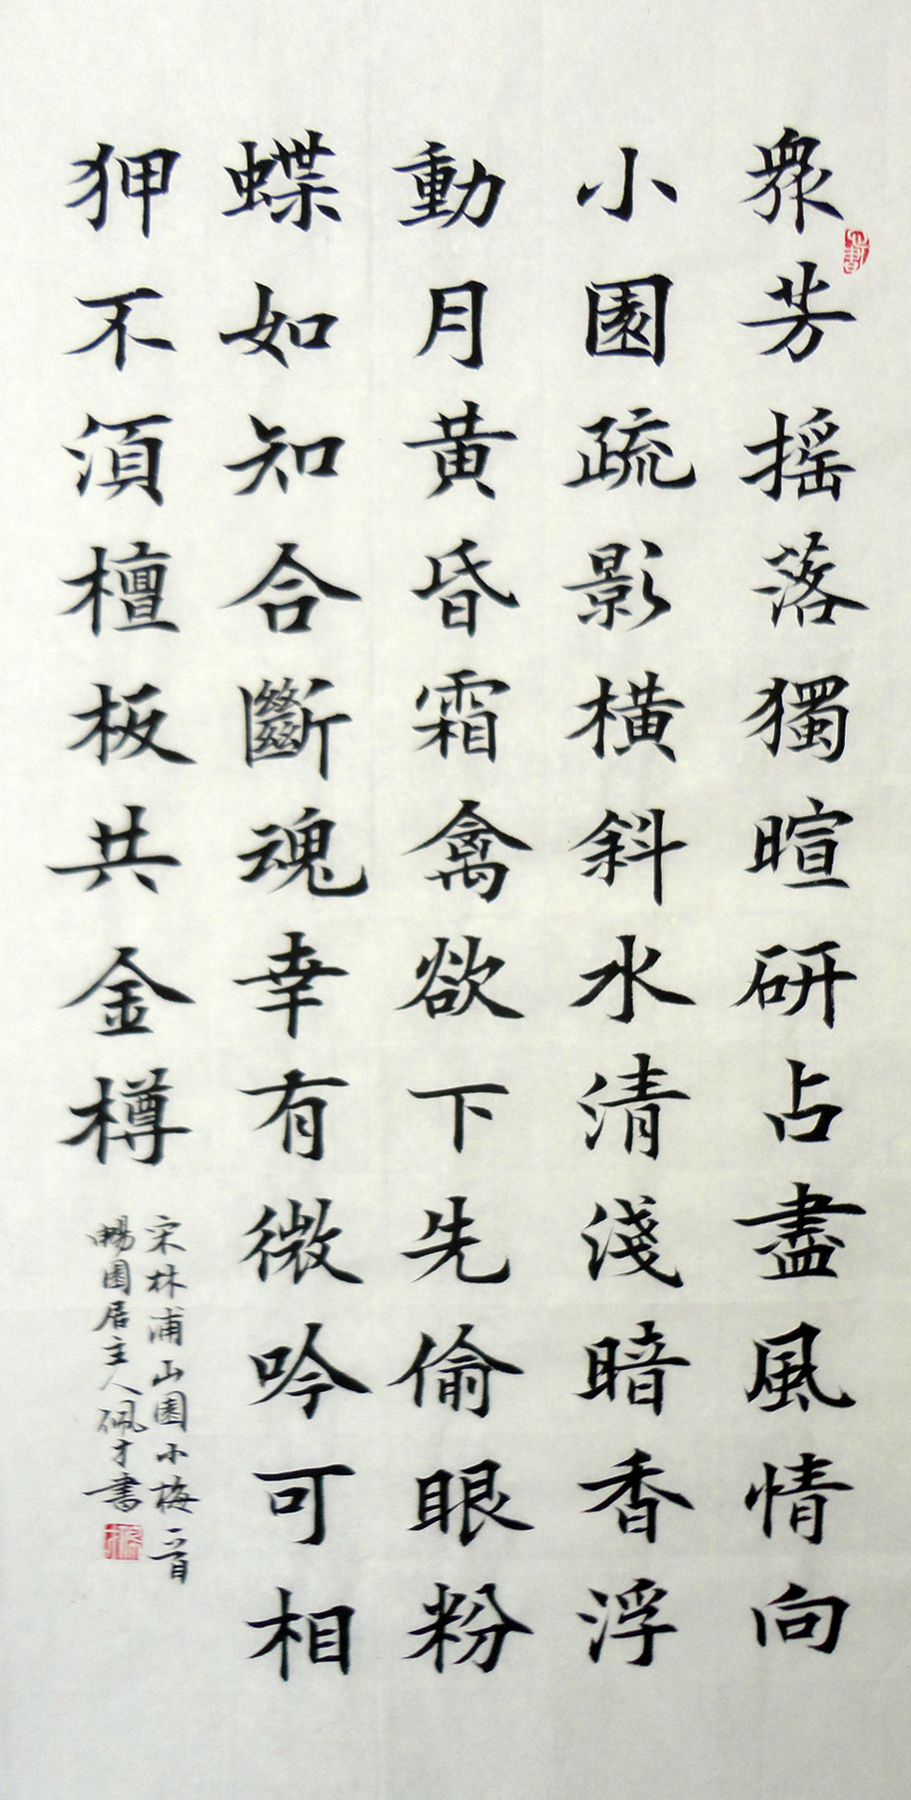 眾芳摇落獨暄研占盡風情向
小園疏影横斜水清淺暗香浮
動月黄昏霜禽欲下先偷眼粉
蝶如知合斷魂幸有微吟可相
狎不須檀板共金樽
宋林浦山園小梅一首
暢園居主人佩才書